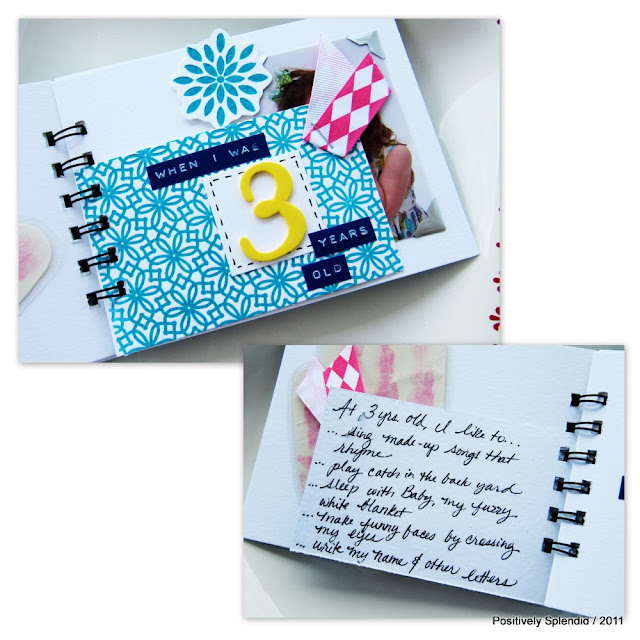 WHEN I WAS
3
YEARS
OLD
At 3 yrs old, I like to...
... sing made-up songs that
rhyme
... play catch in the back yard
... sleep with Baby, my fuzzy
white blanket
... make funny faces by crossing
my eyes
... write my name & other letters
Positively Splendid / 2011